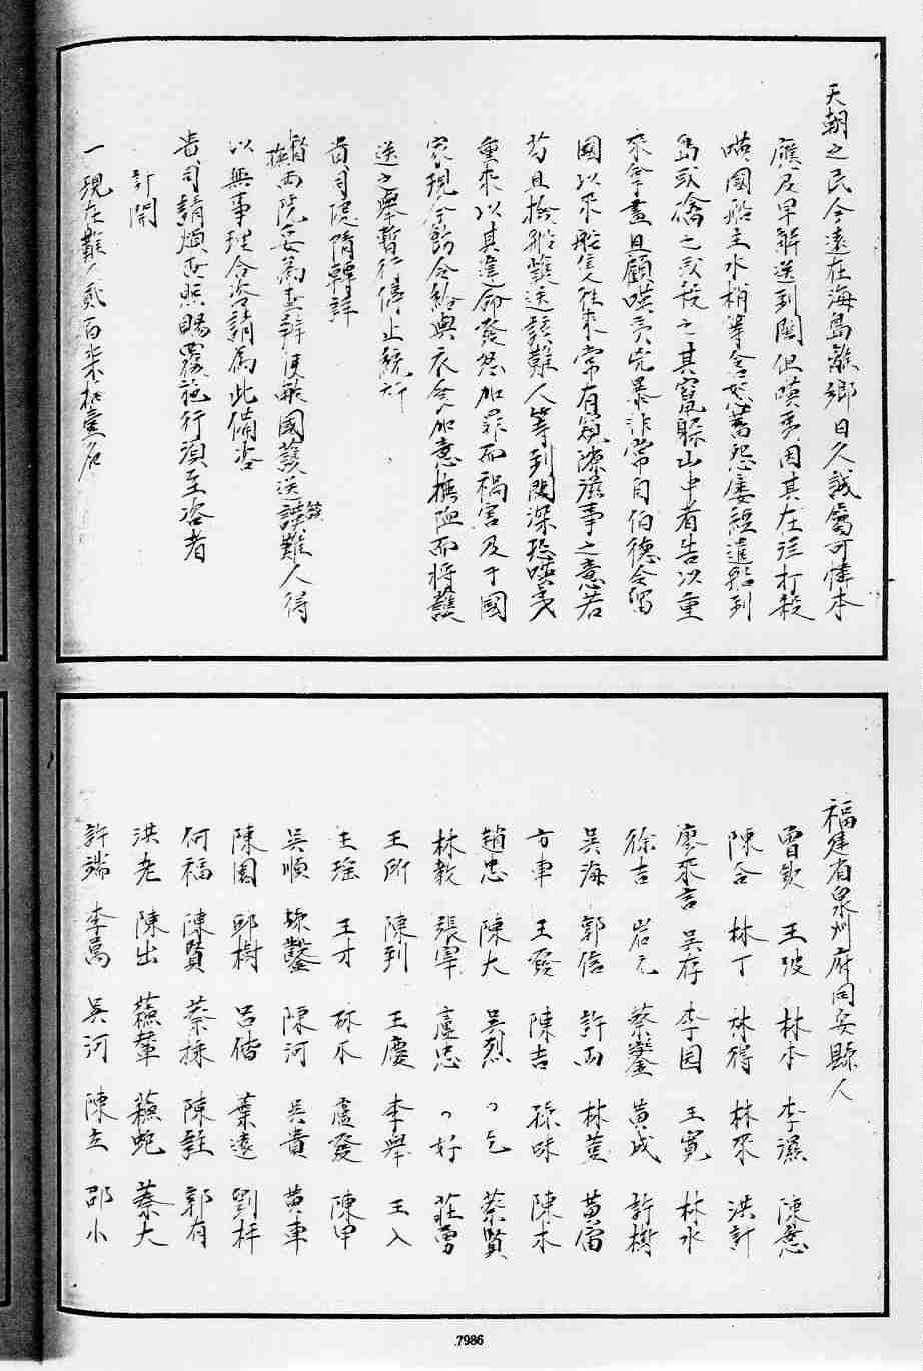 天朝之民今遠在海島離鄉日久誠屬可憐本
應及早解送到閩但嘆夷因其在洋打殺
嘆國船主水梢等含怒蓄怨屢經進船到
島或擒之或殺之其竄躲山中者告以重
來拿盡且顧嘆夷兇暴非常自伯德令留
國以來船隻往來常有窺滋事之意若
苟且撥船護送該難人等到閩深恐嘆夷
重來以其違命發怒加罪而禍害及于國
家現今飭令給與衣食加意撫恤而將護
送之舉暫行停止統祈
貴司隱情轉詳
督撫兩院妥為查辦使敝國護送該難人得
以無事理合咨請為此備咨
貴司請煩查照賜覆施行須至咨者
計開
一現在難人貳百柒拾壹名
福建省泉州府同安縣人
曾欽 王陂 林本 李濕 陳慈
陳合 林丁 林得 林來 洪計
廖來吉 吳存 李因 王寬 林水
徐吉 岩元 蔡鑿 黃成 許樹
吳海 郭信 許西 林萇 黃富
方車 王發 陳吉 孫味 陳木
趙忠 陳大 吳烈 〻乞 蔡賢
林教 張宰 盧忠 〻好 莊勇
王所 陳到 王慶 李舉 王入
王瑤 王才 林爪 盧發 陳甲
吳順 孫鑿 陳河 吳貴 黃車
陳園 邱樹 呂偕 葉遠 劉秤
何福 陳賢 蔡採 陳註 郭有
洪老 陳出 蘇葷 蘇蛇 蔡大
許端 李萬 吳河 陳立 邵小
7986